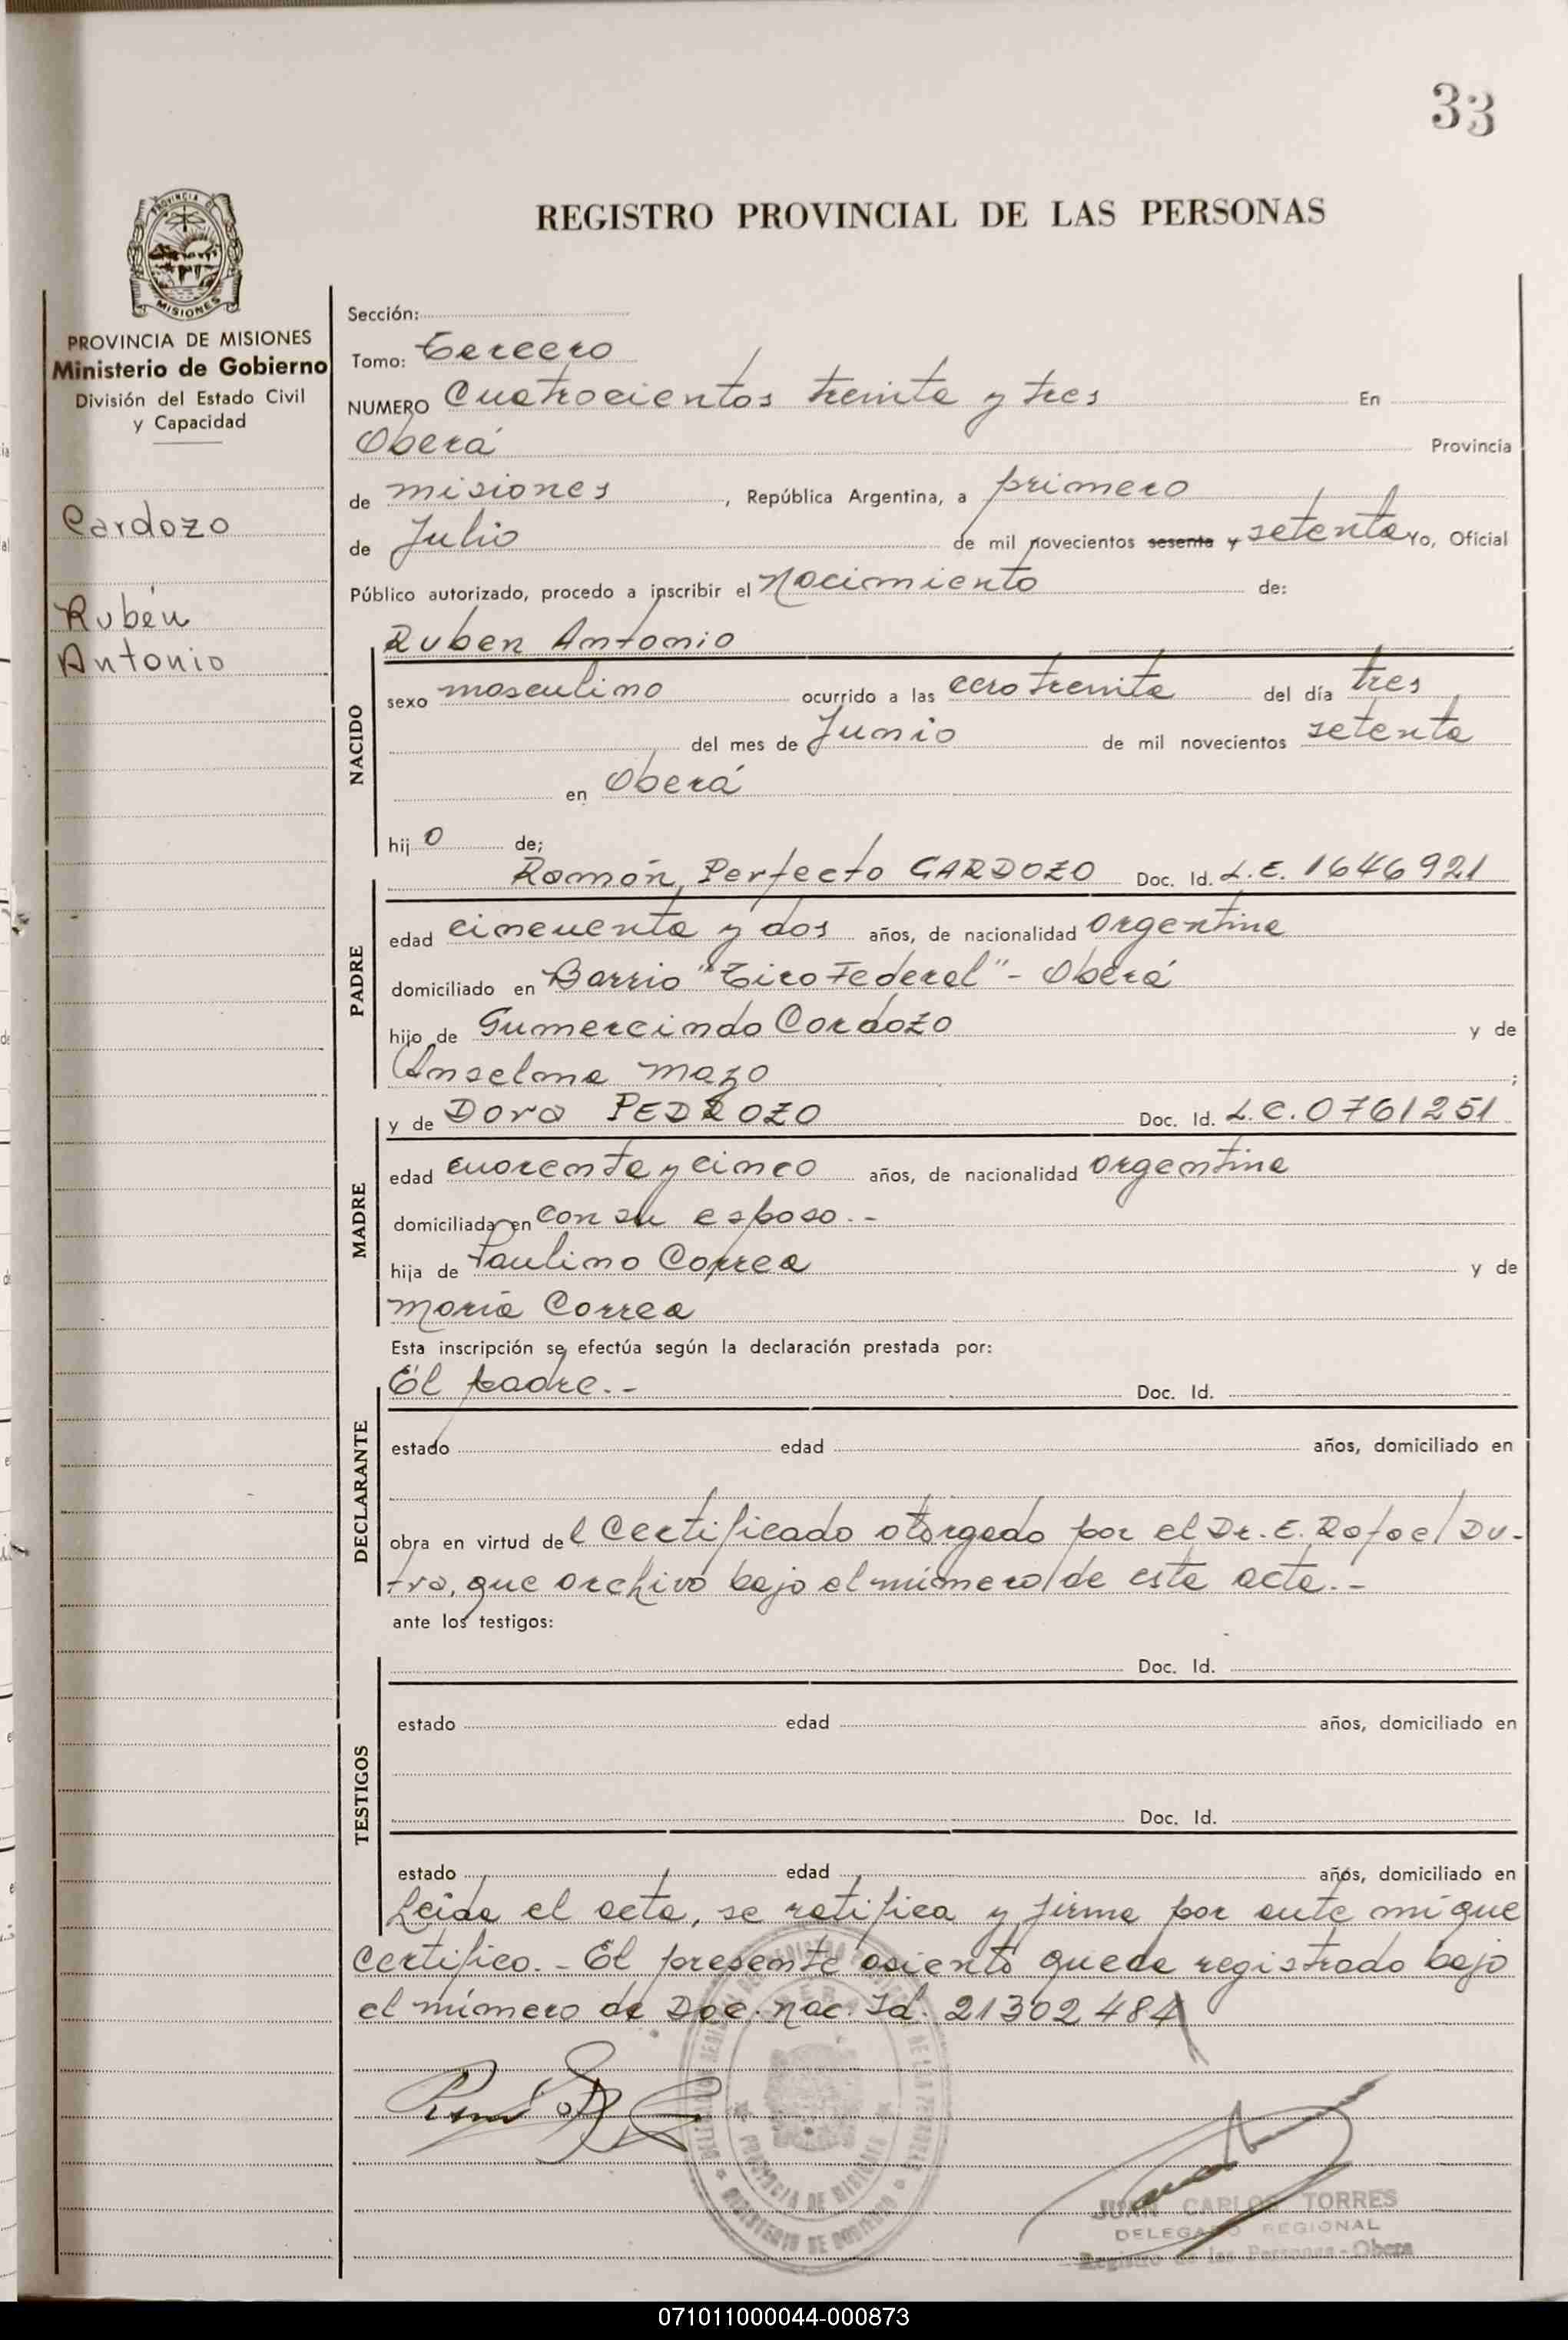 33
PROVINCIA DE
MISIONES
REGISTRO PROVINCIAL DE LAS PERSONAS
PROVINCIA DE MISIONES
Ministerio de Gobierno
División del Estado Civil
y Capacidad
Cardozo
Rubén
Antonio
Sección:
Tomo: Tercero
NUMERO Cuatrocientos treinta y tres En
Oberá Provincia
de misiones, República Argentina, a primero
de Julio de mil novecientos sesenta y setenta Yo, Oficial
Público autorizado, procedo a inscribir el Nacimiento de:
Ruben Antonio
NACIDO
sexo masculino ocurrido a las cero treinta del día tres
del mes de Junio de mil novecientos setenta
en Oberá
hijo de;
PADRE
Ramón Perfecto CARDOZO Doc. Id. L.E. 1646921
edad cincuenta y dos años, de nacionalidad argentina
domiciliado en Barrio "Tiro Federal" - Oberá
hijo de Gumercindo Cardozo y de
Anselma mazo ;
y de Dora PEDROZO Doc. Id. L.C. 0761251
MADRE
edad cuarenta y cinco años, de nacionalidad argentina
domiciliada en con su esposo.-
hija de Paulino Correa y de
María Correa
Esta inscripción se efectúa según la declaración prestada por:
El padre.- Doc. Id.
DECLARANTE
estado edad años, domiciliado en
obra en virtud del Certificado otorgado por el Dr. E. Rafael Du-
tra, que archivo bajo el número de esta acta.-
ante los testigos:
TESTIGOS
Doc. Id.
estado edad años, domiciliado en
Doc. Id.
estado edad años, domiciliado en
Leída el acta, se ratifica y firma por ante mí que
certifico.- El presente asiento queda registrado bajo
el número de Doc. nac. Id. 21302484
PROVINCIA DE MISIONES
MINISTERIO DE GOBIERNO
JUAN CARLOS TORRES
DELEGADO REGIONAL
Registro de las Personas - Obera
071011000044-000873